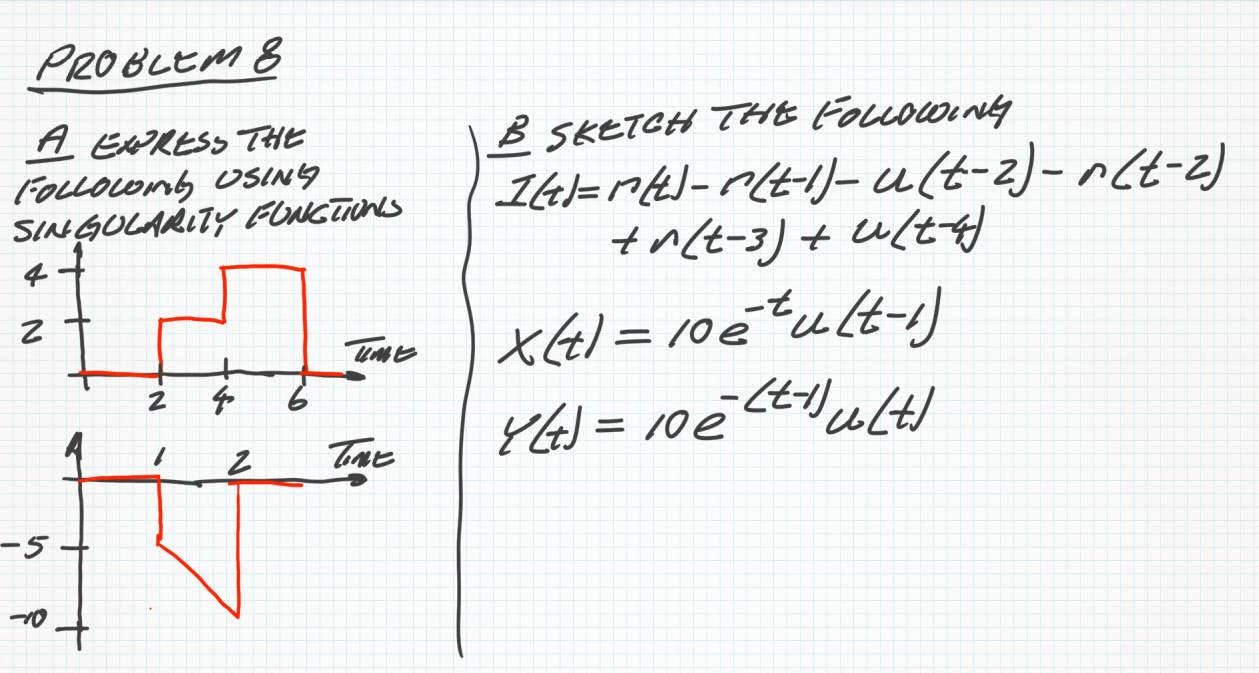 PROBLEM 8
A EXPRESS THE
FOLLOWING USING
SINGULARITY FUNCTIONS
4
2
TIME
2 4 6
1 2 TIME
-5
-10
B SKETCH THE FOLLOWING
I(t)=r(t)-r(t-1)-u(t-2)-r(t-2)
+r(t-3)+u(t-4)
X(t)=10e^{-t}u(t-1)
Y(t)=10e^{-(t-1)}u(t)